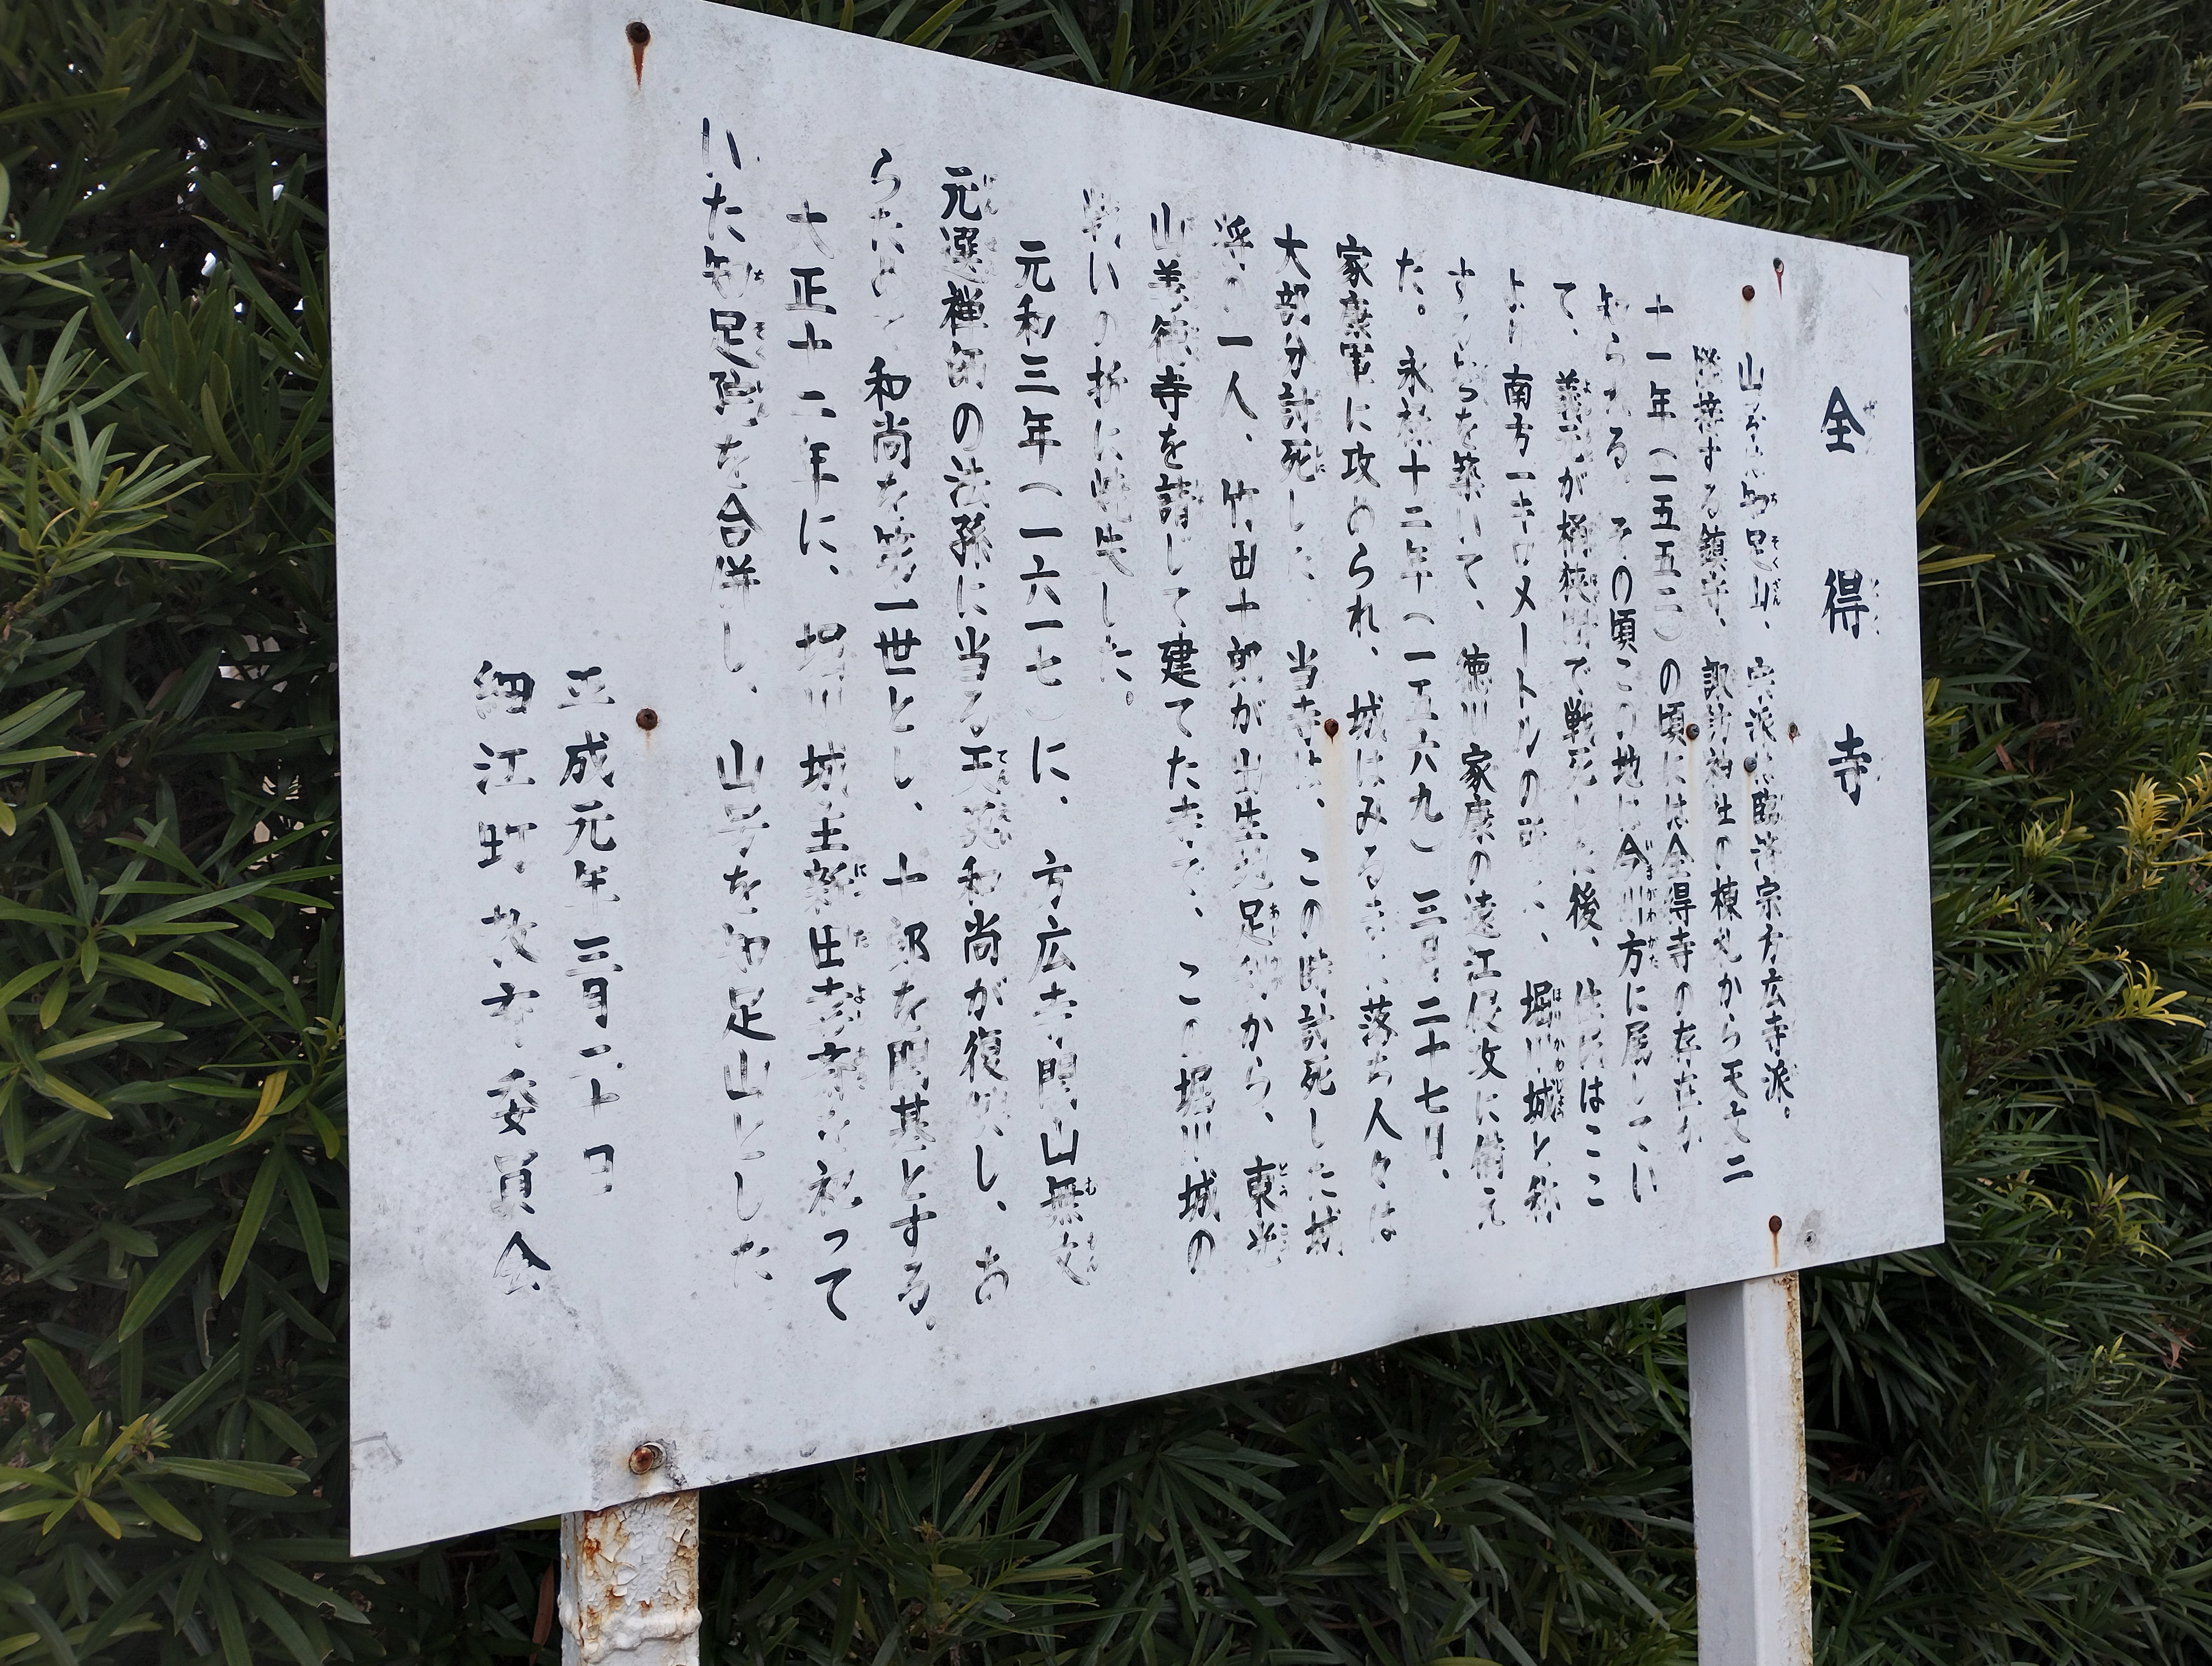 全得寺
山号は知足山、宗派は臨済宗方広寺派。
隣接する鎮守、諏訪神社の棟札から天文二
十一年(一五五二)の頃には全得寺の存在が
知られる。その頃この地は今川方に属してい
て、義元が桶狭間で戦死した後、住民はここ
より南方一キロメートルの所に、堀川城と称
するとりでを築いて、徳川家康の遠江侵攻に備え
た。永禄十二年(一五六九)三月二十七日、
家康軍に攻められ、城はみるまに落ち人々は
大部分討死した。当寺は、この時討死した城
将の一人、竹田十郎が出生地足利から、東光
山善徳寺を請じて建てた寺で、この堀川城の
戦いの折に焼失した。
元和三年(一六一七)に、方広寺開山無文
元選禅師の法孫に当る天菀和尚が復興し、あ
らためて和尚を第一世とし、十郎を開基とする。
大正十二年に、堀川城主新田喜斎を祀って
いた知足院を合併し、山号を知足山とした
平成元年三月二十日
細江町教育委員会